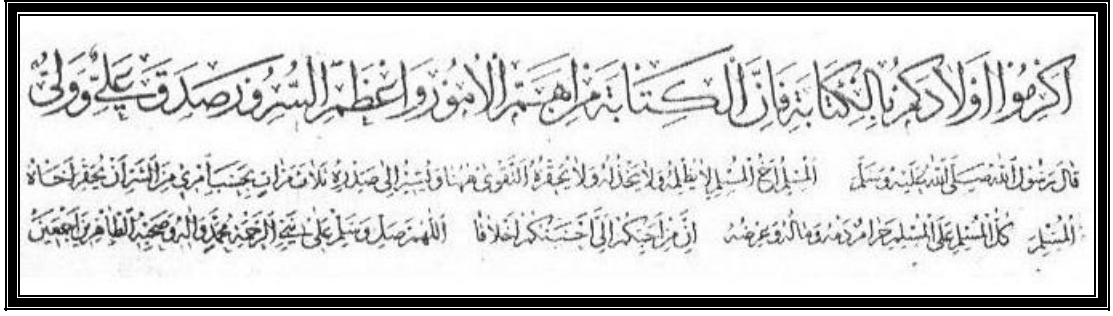 اكرموا اولادكم بالكتابة فان الكتابة من اهم الامور واعظم السرور صدق علي وولي
قال رسول الله صلى الله عليه وسلم المسلم اخ المسلم لا يظلمه ولا يخذله ولا يحقره التقوى ههنا ويشير الى صدره ثلاث مرات بحسب امرئ من الشر ان يحقر اخاه
المسلم كل المسلم على المسلم حرام دمه وماله وعرضه ان من احبكم الي احسنكم اخلاقا اللهم صل وسلم على نبي الرحمة محمد واله وصحبه الطاهرين اجمعين